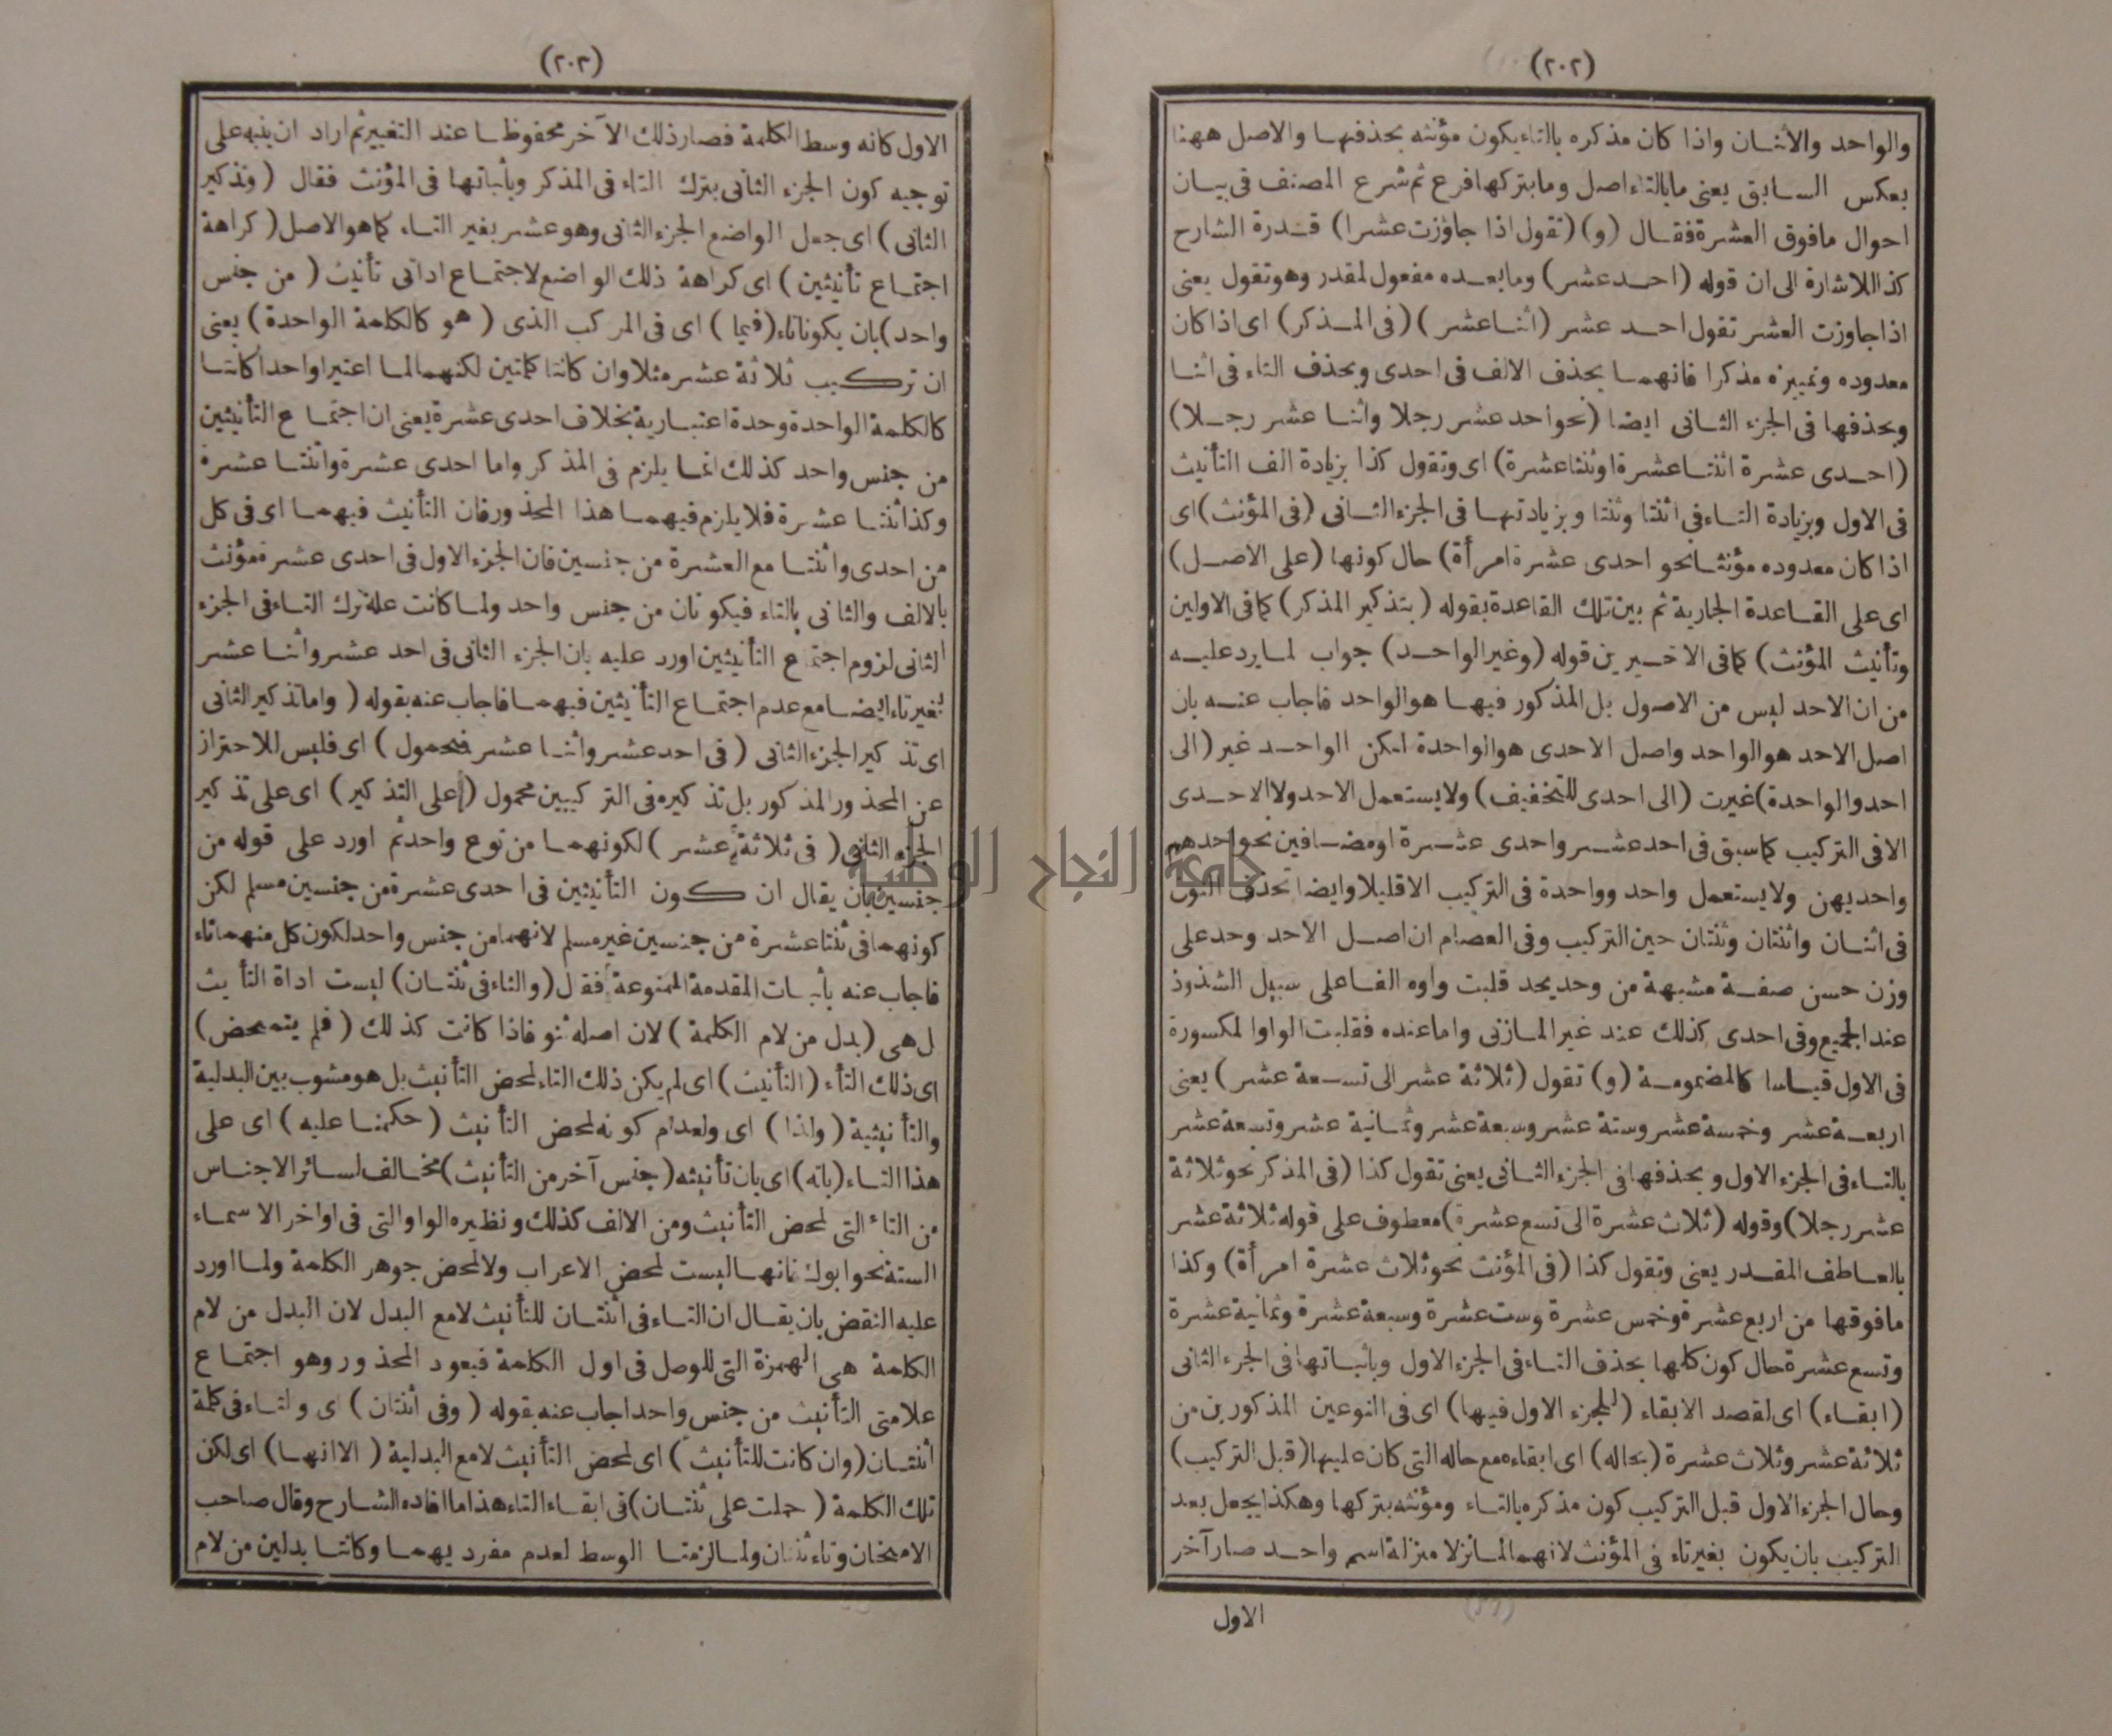 (٢٠٢)
والواحد والاثنان واذا كان مذكره بالتاء يكون مؤنثه بحذفها والاصل ههنا
بعكس السابق يعنى ما بالتاء اصل وما بتركها فرع ثم شرع المصنف فى بيان
احوال ما فوق العشرة فقال (و) (تقول اذا جاوزت عشرا) قدره الشارح
كذا للاشارة الى ان قوله (احد عشر) وما بعده مفعول لمقدر وهو تقول يعنى
اذا جاوزت العشر تقول احد عشر (اثنا عشر) (فى المذكر) اى اذا كان
معدوده وتمييزه مذكرا فانهما بحذف الالف فى احدى وبحذف التاء فى اثنا
وبحذفها فى الجزء الثانى ايضا (نحو احد عشر رجلا واثنا عشر رجلا)
(احدى عشرة اثنتا عشرة او ثنتا عشرة) اى وتقول كذا بزيادة الف التأنيث
فى الاول وبزيادة التاء فى اثنتا وثنتا وبزيادتها فى الجزء الثانى (فى المؤنث) اى
اذا كان معدوده مؤنثا نحو احدى عشرة امرأة) حال كونها (على الاصل)
اى على القاعدة الجارية ثم بين تلك القاعدة بقوله (بتذكير المذكر) كما فى الاولين
وتأنيث المؤنث) كما فى الاخيرين قوله (وغير الواحد) جواب لما يرد عليه
من ان الاحد ليس من الاصول بل المذكور فيها هو الواحد فاجاب عنه بان
اصل الاحد هو الواحد واصل الاحدى هو الواحدة لكن الواحد غير (الى
احد والواحدة) غيرت (الى احدى للتخفيف) ولا يستعمل الاحد ولا الاحدى
الا فى التركيب كما سبق فى احد عشر واحدى عشرة او مضافين نحو احدهم
واحديهن ولا يستعمل واحد وواحدة فى التركيب الا قليلا وايضا تحذف النون
فى اثنان واثنتان وثنتان حين التركيب وفى العصام ان اصل الاحد وحد على
وزن حسن صفة مشبهة من وحد يحد قلبت واوه الفا على سبيل الشذوذ
عند الجميع وفى احدى كذلك عند غير المازنى واما عنده فقلبت الواو المكسورة
فى الاول قياسا كالمضمومة (و) تقول (ثلاثة عشر الى تسعة عشر) يعنى
اربعة عشر وخمسة عشر وستة عشر وسبعة عشر وثمانية عشر وتسعة عشر
بالتاء فى الجزء الاول وبحذفها فى الجزء الثانى يعنى تقول كذا (فى المذكر نحو ثلاثة
عشر رجلا) وقوله (ثلاث عشرة الى تسع عشرة) معطوف على قوله ثلاثة عشر
بالعاطف المقدر يعنى وتقول كذا (فى المؤنث نحو ثلاث عشرة امرأة) وكذا
ما فوقها من اربع عشرة وخمس عشرة وست عشرة وسبعة عشرة وثمانية عشرة
وتسع عشرة حال كون كلها بحذف التاء فى الجزء الاول وباثباتها فى الجزء الثانى
(ابقاء) اى لقصد الابقاء (للجزء الاول فيها) اى فى النوعين المذكورين من
ثلاثة عشر وثلاث عشرة (بحاله) اى ابقاءه مع حاله التى كان عليها (قبل التركيب)
وحال الجزء الاول قبل التركيب كون مذكره بالتاء ومؤنثه بتركها وهكذا يجعل بعد
التركيب بان يكون بغير تاء فى المؤنث لانهما لما نزلا منزلة اسم واحد صار آخر
الاول
(٢٠٣)
الاول كانه وسط الكلمة فصار ذلك الآخر محفوظا عند التغيير ثم اراد ان ينبه على
توجيه كون الجزء الثانى بترك التاء فى المذكر وبأثباتها فى المؤنث فقال (وتذكير
الثانى) اى جعل الواضع الجزء الثانى وهو عشر بغير التاء، كما هو الاصل (كراهة
اجتماع تأنيثين) اى كراهة ذلك الواضع لاجتماع اداتى تأنيث (من جنس
واحد) بان يكونا تاء (فيما) اى فى المركب الذى (هو كالكلمة الواحدة) يعنى
ان تركيب ثلاثة عشر مثلا وان كانتا كلمتين لكنهما لما اعتبرا واحدا كانتا
كالكلمة الواحدة وحدة اعتبارية بخلاف احدى عشرة يعنى ان اجتماع التأنيثين
من جنس واحد كذلك انما يلزم فى المذكر واما احدى عشرة واثنتا عشرة
وكذا ثنتا عشرة فلا يلزم فيهما هذا المحذور فان التأنيث فيهما اى فى كل
من احدى واثنتا مع العشرة من جنسين فان الجزء الاول فى احدى عشرة مؤنث
بالالف والثانى بالتاء فيكونان من جنس واحد ولما كانت علة ترك التاء فى الجزء
الثانى لزوم اجتماع التأنيثين اورد عليه بان الجزء الثانى فى احد عشر واثنا عشر
بغير تاء ايضا مع عدم اجتماع التأنيثين فيهما فاجاب عنه بقوله (واما تذكير الثانى
اى تذكير الجزء الثانى (فى احد عشر واثنا عشر فمحمول) اى فليس للاحتراز
عن المحذور المذكور بل تذكيره فى التركيبين محمول (على التذكير) اى على تذكير
الجزء الثانى (فى ثلاثة عشر) لكونهما من نوع واحد ثم اورد على قوله من
جنسين بان يقال ان كون التأنيثين فى احدى عشرة من جنسين مسلم لكن
كونهما فى ثنتا عشرة من جنسين غير مسلم لانهما من جنس واحد لكون كل منهما تاء
فاجاب عنه بأثبات المقدمة الممنوعة فقال (والتاء فى ثنتان) ليست اداة التأنيث
ل هى (بدل من لام الكلمة) لان اصله ثنو فاذا كانت كذلك (فلم يتمحض)
اى ذلك التاء (التأنيث) اى لم يكن ذلك التاء لمحض التأنيث بل هو مشوب بين البدلية
والتأنيثية (ولذا) اى ولعدام كونه لمحض التأنيث (حكمنا عليه) اى على
هذا التاء (بانه) اى بان تأنيثه (جنس آخر من التأنيث) مخالف لسائر الاجناس
من التاء التى لمحض التأنيث ومن الالف كذلك ونظيره الواو التى فى اواخر الاسماء
الستة نحو ابوك فانها ليست لمحض الاعراب ولا لمحض جوهر الكلمة ولما اورد
عليه النقض بان يقال ان التاء فى اثنتان للتأنيث لامع البدل لان البدل من لام
الكلمة هى الهمزة التى للوصل فى اول الكلمة فيعود المحذور وهو اجتماع
علامتى التأنيث من جنس واحد اجاب عنه بقوله (وفى اثنتان) اى والتاء فى كلمة
اثنتان (وان كانت للتأنيث) اى لمحض التأنيث لامع البدلية (الا انها) اى لكن
تلك الكلمة (حملت على ثنتان) فى ابقاء التاء هذا ما افاده الشارح وقال صاحب
الامتحان وتاء ثنتان ولما لزمتا الوسط لعدم مفرديهما وكانتا بدلين من لام
جامعة النجاح الوطنية